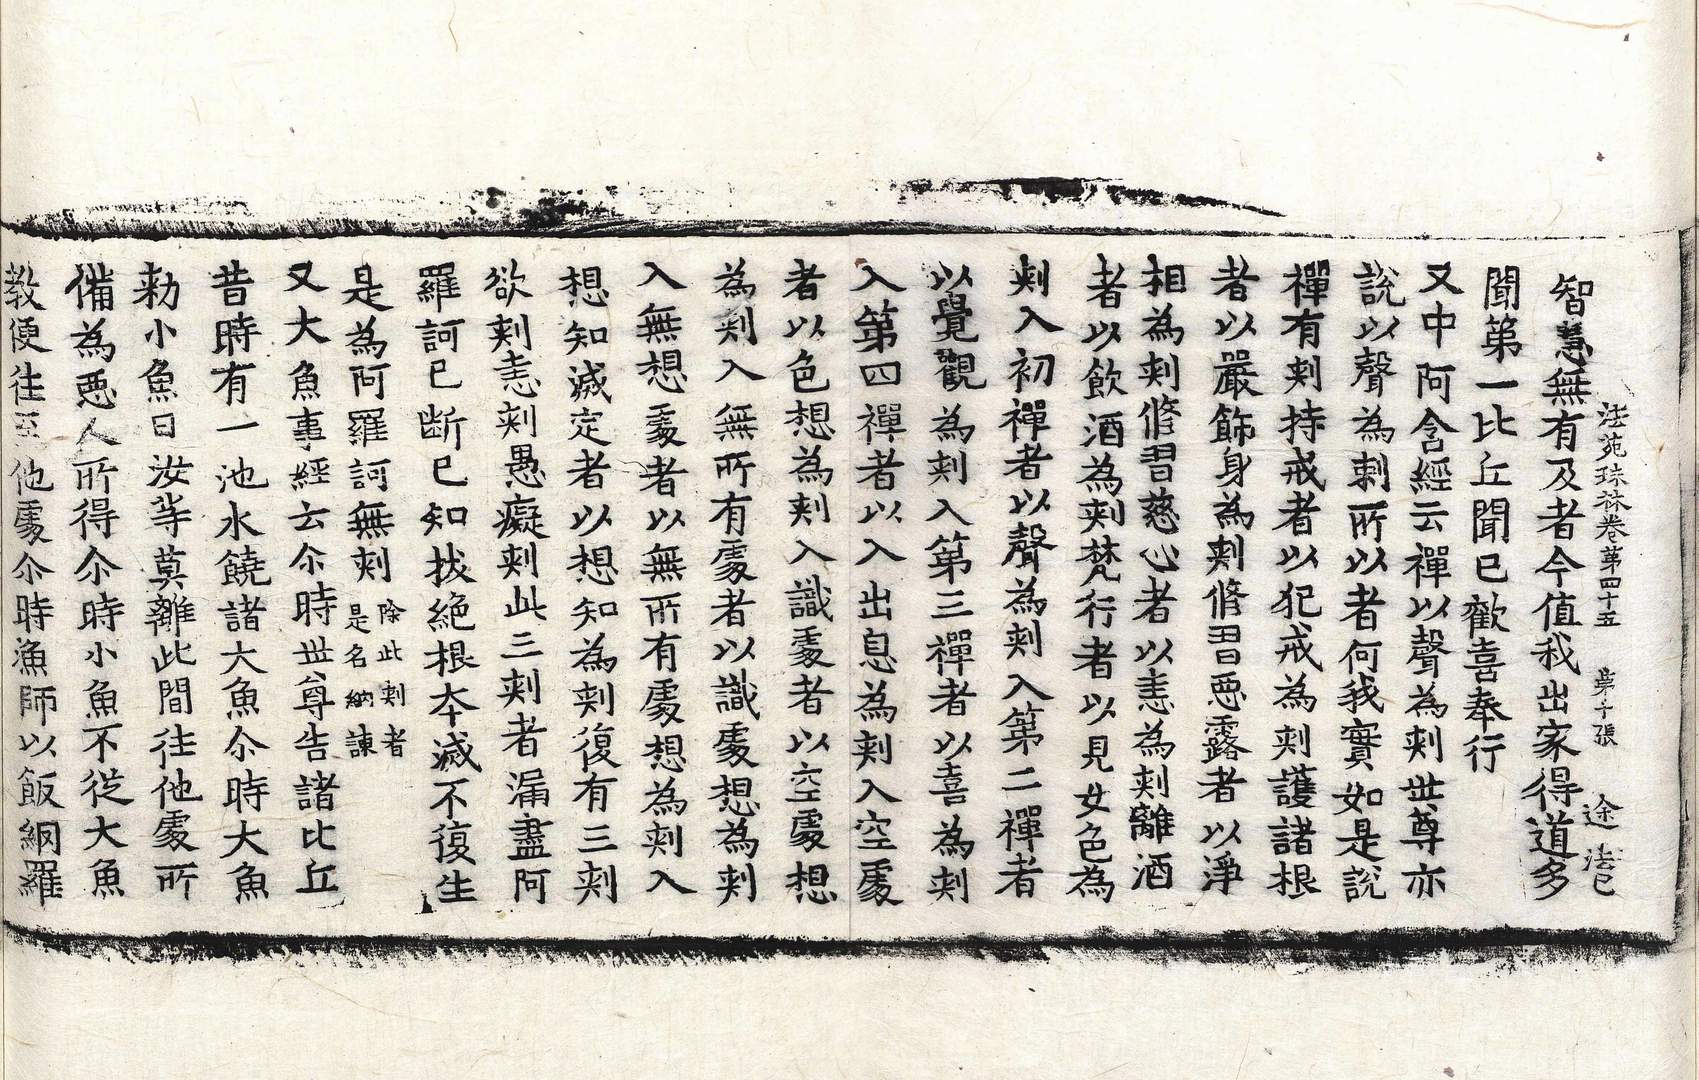 法苑珠林卷第四十五　第十張　途　法已
智慧無有及者今值我出家得道多
聞第一比丘聞已歡喜奉行
又中阿含經云禪以聲為刾世尊亦
說以聲為刺所以者何我實如是說
禪有刾持戒者以犯戒為刾護諸根
者以嚴飾身為刾修習惡露者以淨
相為刾修習慈心者以恚為刾離酒
者以飲酒為刾梵行者以見女色為
刾入初禪者以聲為刾入第二禪者
以覺觀為刾入第三禪者以喜為刾
入第四禪者以入出息為刾入空處
者以色想為刾入識處者以空處想
為刾入無所有處者以識處想為刾
入無想處者以無所有處想為刾入
想知滅定者以想知為刾復有三刾
欲刾恚刾愚癡刾此三刾者漏盡阿
羅訶已斷已知拔絕根本滅不復生
是為阿羅訶無刾
除此刾者
是名納諫
又大魚事經云尒時世尊告諸比丘
昔時有一池水饒諸大魚尒時大魚
勑小魚曰汝等莫離此間往他處所
備為惡人所得尒時小魚不從大魚
教便往至他處尒時漁師以飯網羅